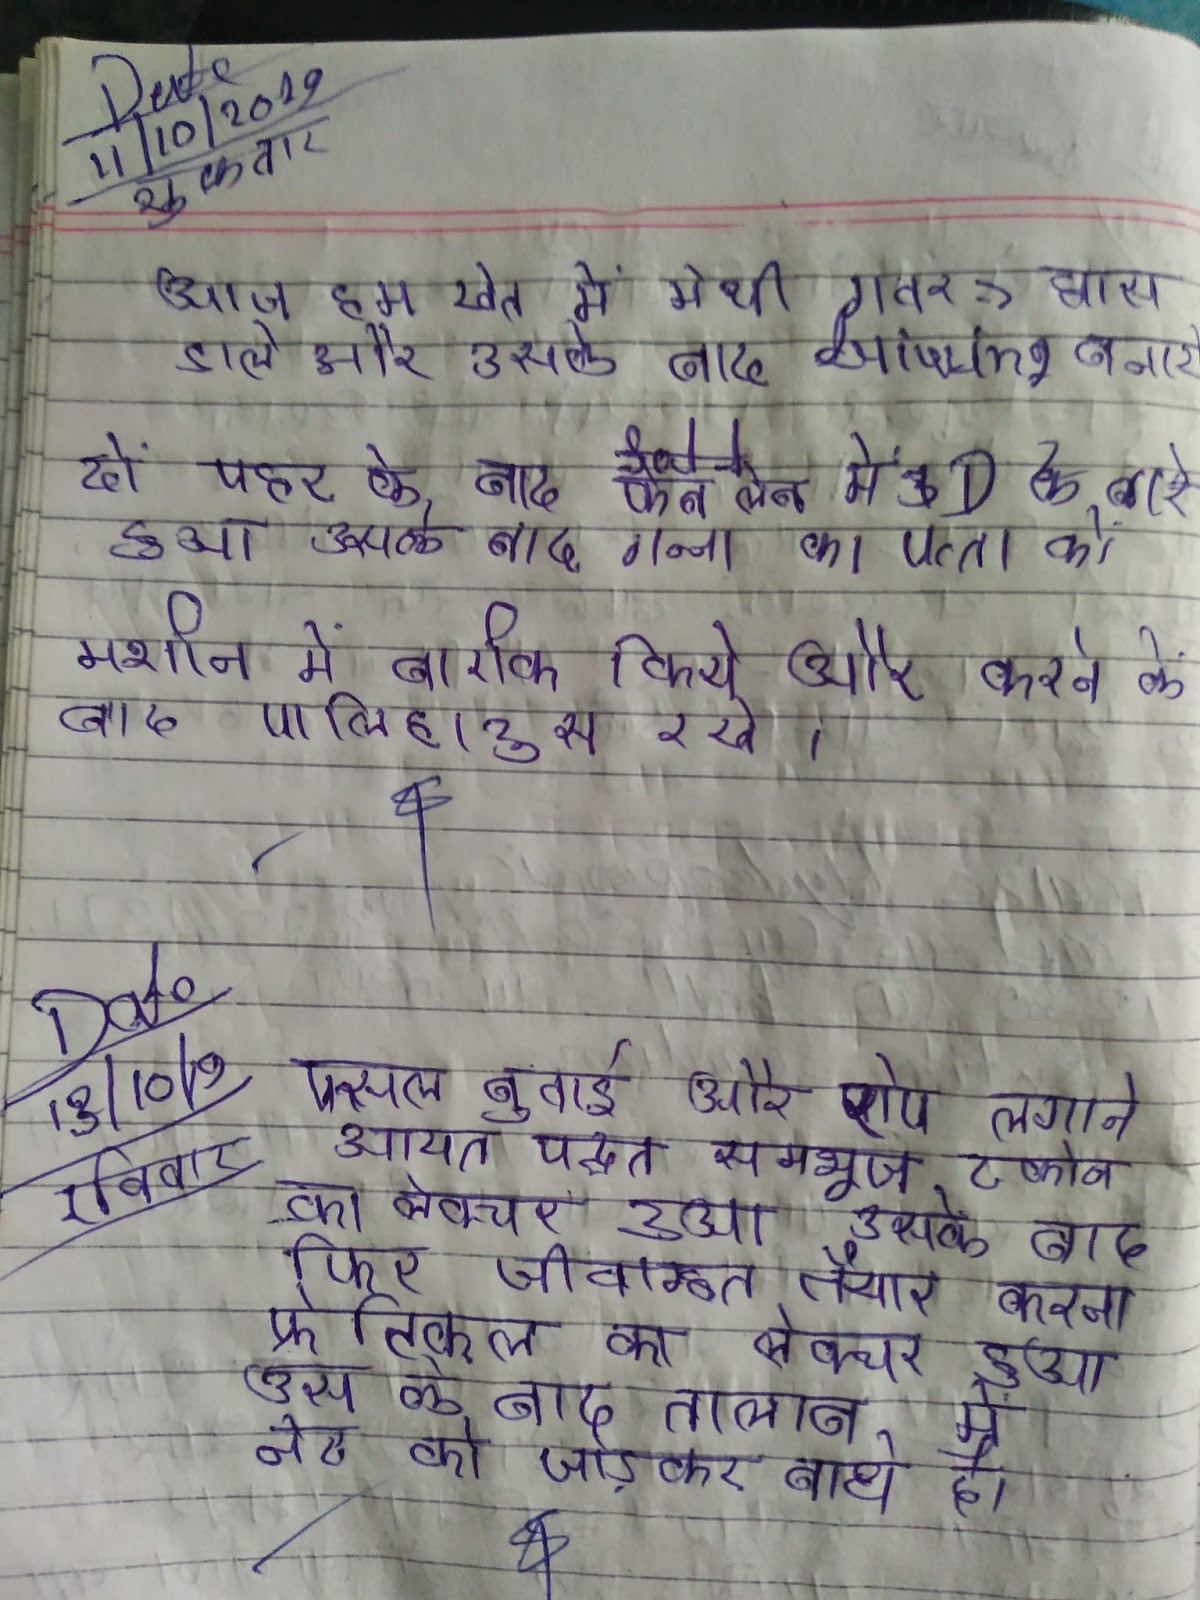 Date
11/10/2019
शुक्रवार
आज हम खेत में मेथी घास
डाले और उसके बाद बनाये
दों पहर के बाद में 3D के बारे
हुआ उसके बाद गन्ना का पत्ता को
मशीन में बारीक किये और करने के
बाद पालिहाउस रखे ।
Date
13/10/19
रविवार
फसल बुवाई और रोप लगाने
आयत पद्धत समभूज
का लेक्चर हुआ उसके बाद
फिर जीवामृत तैयार करना
प्रेतिकल का लेक्चर हुआ
उस के बाद तालाब में
नेट को जोड़कर बाधे है।